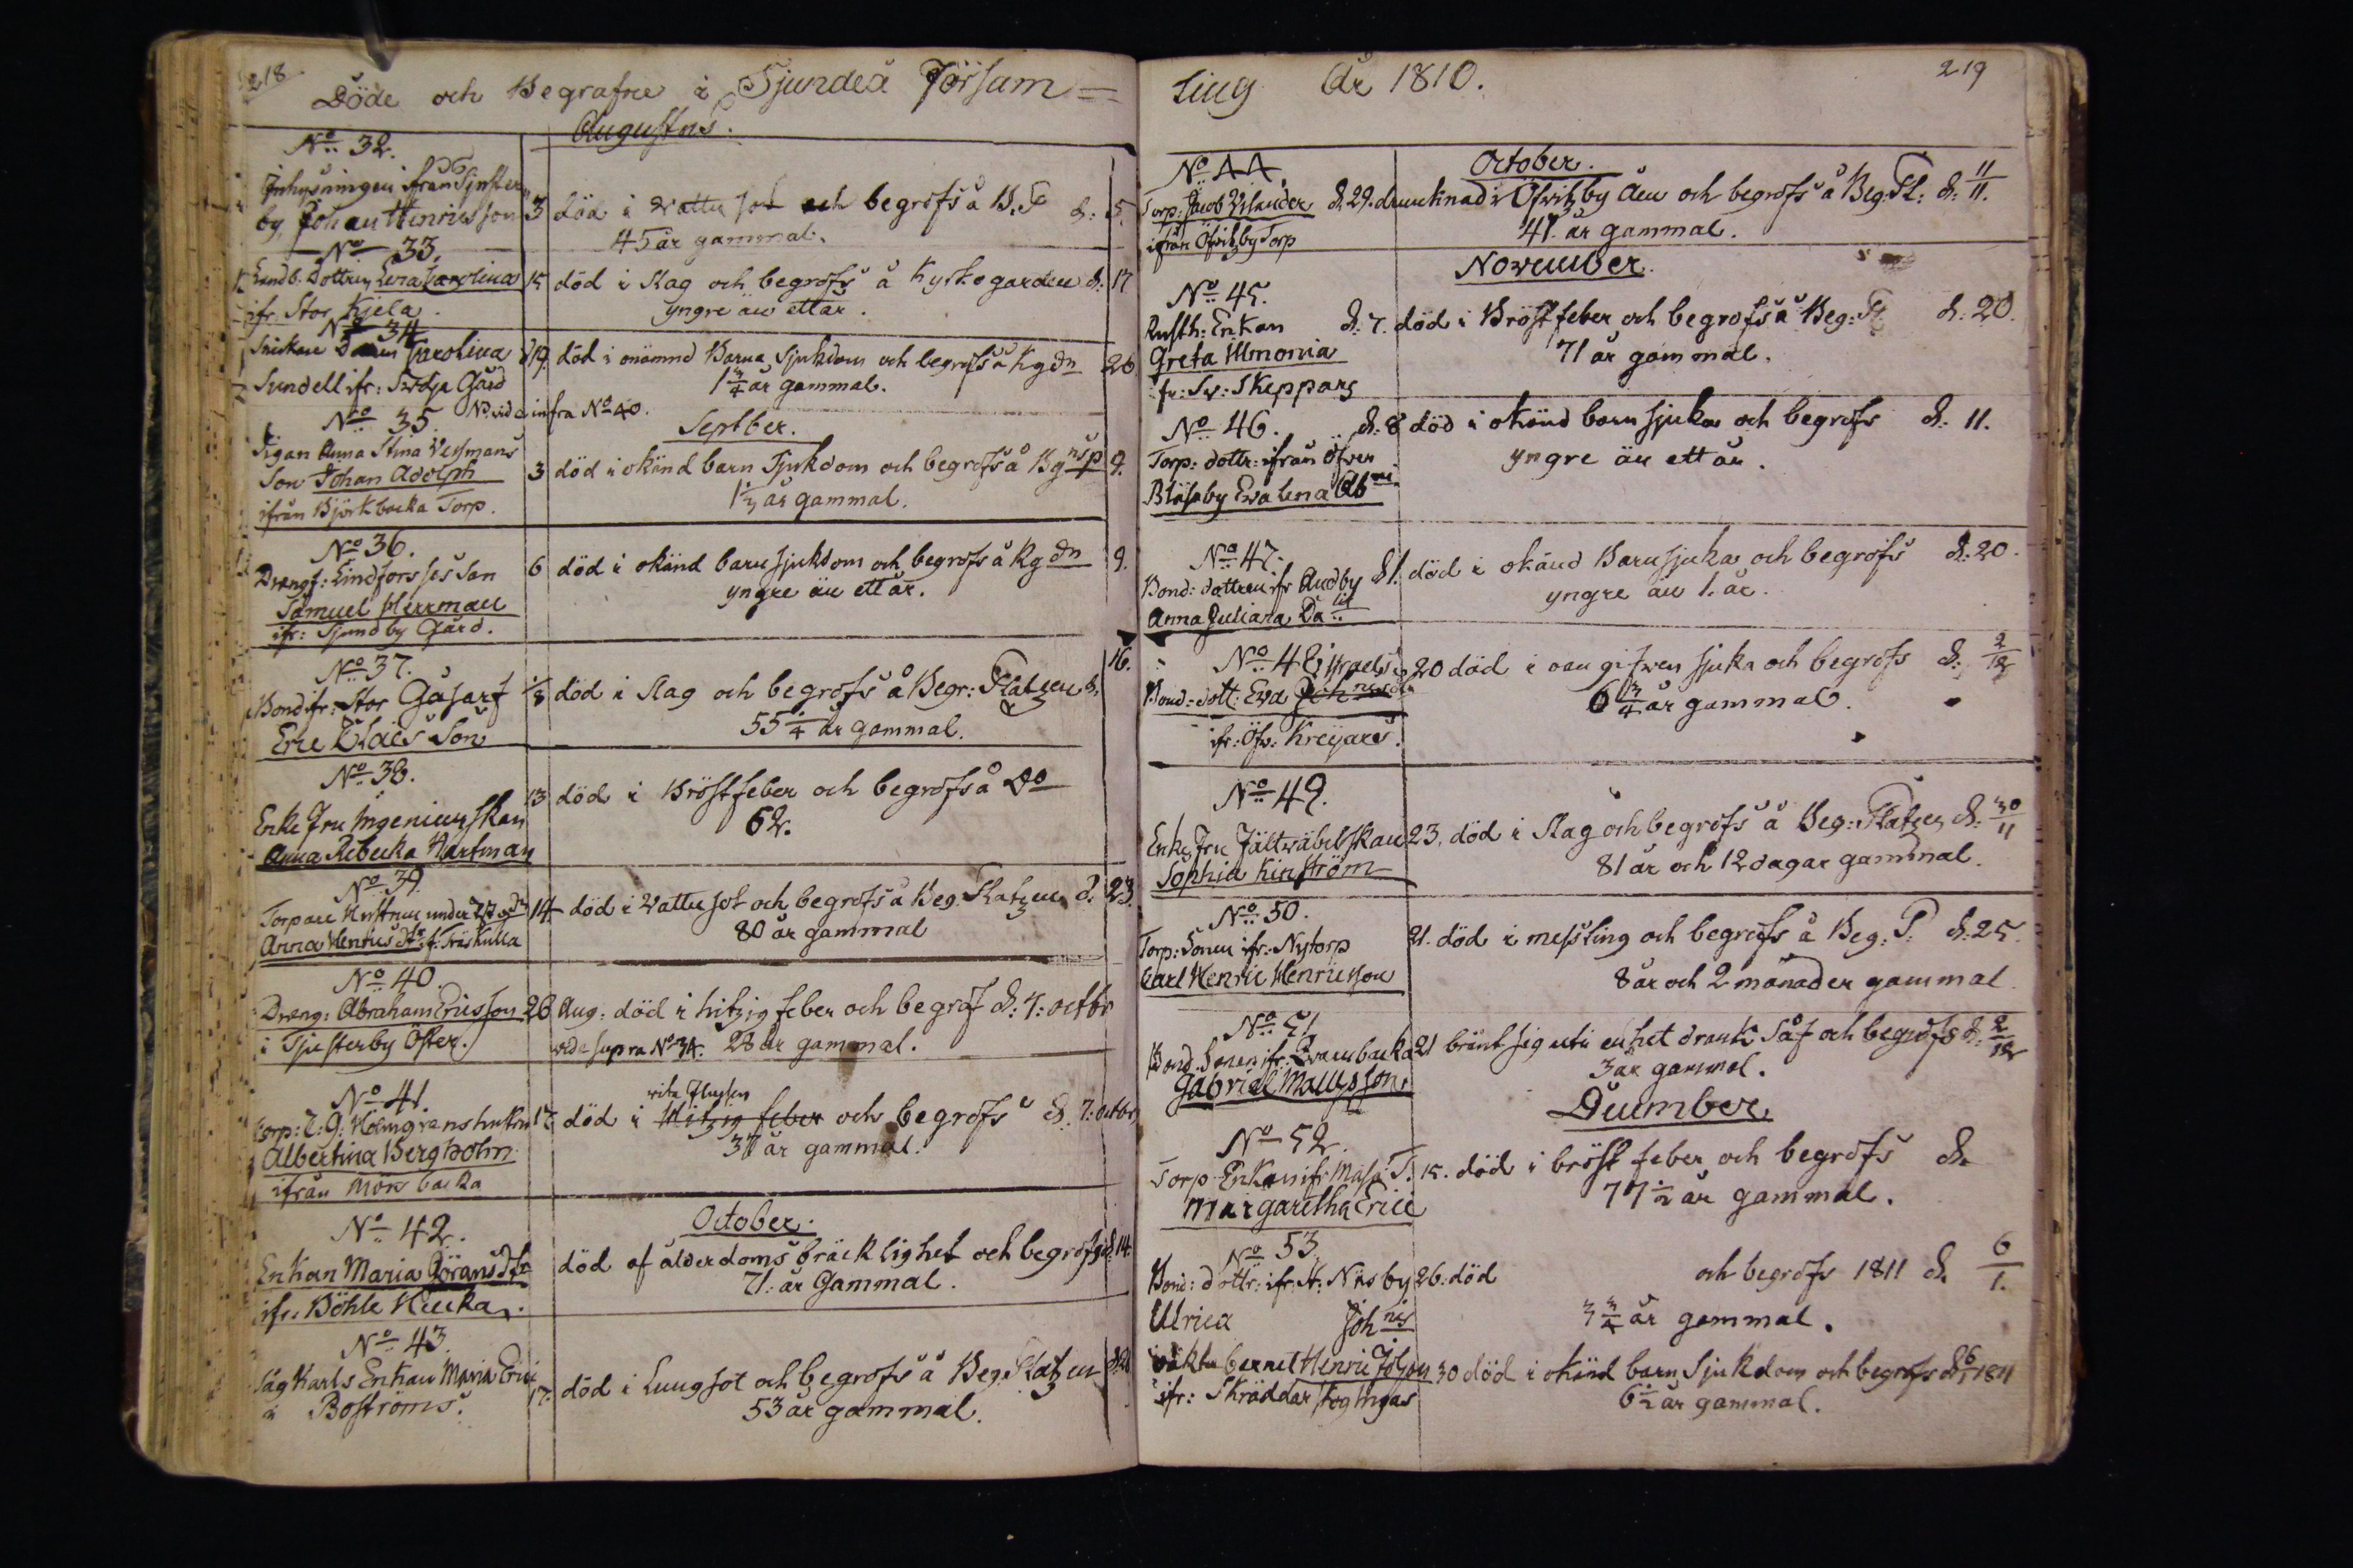 218
Döde och Begrafne i Sjundeå Försam=
Augustus.
No 32.
Inhysningen ifrån Sjuster
by, Johan Henricsson 3 död i vattusot och begrofs å B. d: 5.
45 år gammal.
No 33.
Landb. Dottren Lena Carolina 15 död i slag och begrofs å Kyrkogården d: 17
ifr. Stor Kjela. yngre än ett år.
No 34
Carolina d 19. död i onämnd Barna sjukdom och begrofs å Kgdn 26
Sundell ifr: Svidja Gård 1 3/4 år gammal.
No 35. N. vida infra No 40.
Septber.
Pigan Anna Stina Vesmans
Son Johan Adolph 3 död i okänd barn Sjukdom och begrofs å 9.
ifrån Björkbacka Torp. 1 1/2 år gammal.
No 36.
Drengs: Lindforsses Son 6 död i okänd barn sjukdom och begrofs å Kgdn 9.
Samuel Herrman yngre än ett år.
ifr: Sjundby Gård.
No 37. 16.
Bond ifr: Stor Gåsarf 8 död i slag och begrofs å Begr: Platzen d.
Eric Claës Son 55 1/4 år gammal.
No 38.
Enke Fru Ingenieurskan 13 död i Bröstfeber och begrofs å Do
Anna Rebecka Hartman 62.
No 39.
Torpare Hustrun under 14 död i Vattusot och begrofs å Beg. Platzen d. 23.
Anna Henrics dtr f: Träskulla 80 år gammal
No 40.
Dreng: Abraham Ericsson 26 Aug: död i hitzig feber och begrof d: 7: octbr
i Tjusterby Öfter. vide supra No 34. 28 år gammal.
No 41.
Torp: C: G: Holmgrens hustru 17 död i Hitzig feber och begrofs d. 7: octbr
Albertina Bergholm 37 år gammal.
ifrån Mörsbacka
No 42.
October.
Enkan Maria Görans dtr död af ålderdoms bräcklighet och begrofs d. 14.
ifr. Böhle Kucka. 71: år Gammal.
No 43.
Såg Karls Enkan Maria Eric 17. död i Lungsot och begrofs å Beg. Platzen
å Boströms. 53 år gammal.
ling År 1810. 219
October.
No 44.
Torp: Jacob Vilander d. 29. druncknad i Öfvitzby åen och begrofs å Beg: Pl: d: 11/11.
ifrån Öfvitzby Torp 41 år gammal.
November.
No 45.
Rusth: Enkan d: 7. död i Bröstfeber och begrofs å Beg: Pl: d: 20.
Greta 71 år gammal.
fr: Sv: Skeppars
No 46. d: 8 död i okänd barn sjuka och begrofs d: 11.
Torp: dottr: ifrån Öfver yngre än ett år.
Blåsaby Eva Lena
No 47.
Bond: dottren ifr Andby d 1. död i okänd Barnsjuka och begrofs d: 20.
Anna Juliana yngre än 1. år.
No 48 20 död i oangifven sjuka och begrofs d: 2/12
Bond: dott: Eva 6 3/4 år gammal.
ifr: Öfv: Kreijars.
No 49.
Enke Fru Fältväbelskan 23. död i Slag och begrofs å Beg: Platzen d: 30/11
Sophia Kinström 81 år och 12 dagar gammal.
No 50.
Torp: Sonen ifr: Nytorp 21. död i messling och begrofs å Beg: P. d: 25.
Carl Henric Henricsson 8 år och 2 månader gammal.
No 51
Bond. Sonen ifr: Qvarnbacka 21 bränt sig uti en het drank så och begrofs d: 2/12
Gabriel Mattsson. 3 år gammal.
December.
No 52.
Torp Enkan ifr: 15. död i bröst feber och begrofs d.
Margaretha Erici 77 1/2 år gammal.
No 53.
Bond: dottr: ifr. St: Näsby 26. död och begrofs 1811 d. 6/1.
Ulrica Joh nis 3 3/4 år gammal.
barnet Henric 30 död i okänd barn Sjukdom och begrofs d 6/1 1811
ifr: Skräddarskog Ingas 6 1/2 år gammal.